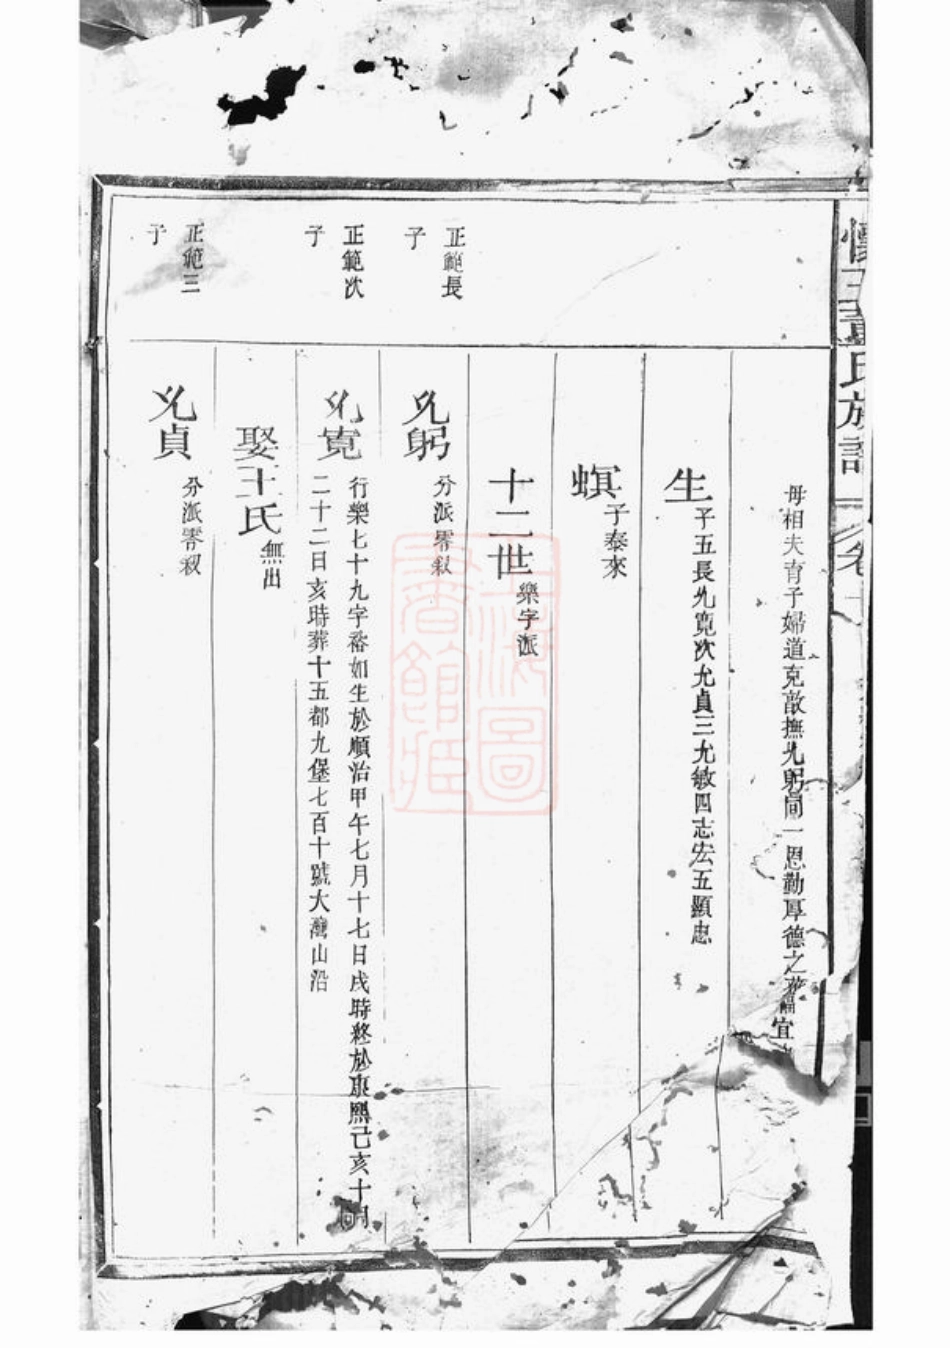 母相夫育子婦道克敵撫允躬同一恩勤厚德之 宜
生
子五長允寬次允貞三允敏四志宏五顯忠
螟
子泰來
十二世
樂字派
正範長
子
允躬
分派零叙
正範次
子
允寬
行樂七十九字裕如生於順治甲午七月十七日戌時終於康熙己亥十月
二十二日亥時葬十五都九堡七百十號大灣山沿
娶王氏
無出
正範三
子
允貞
分派零叙
氏族譜